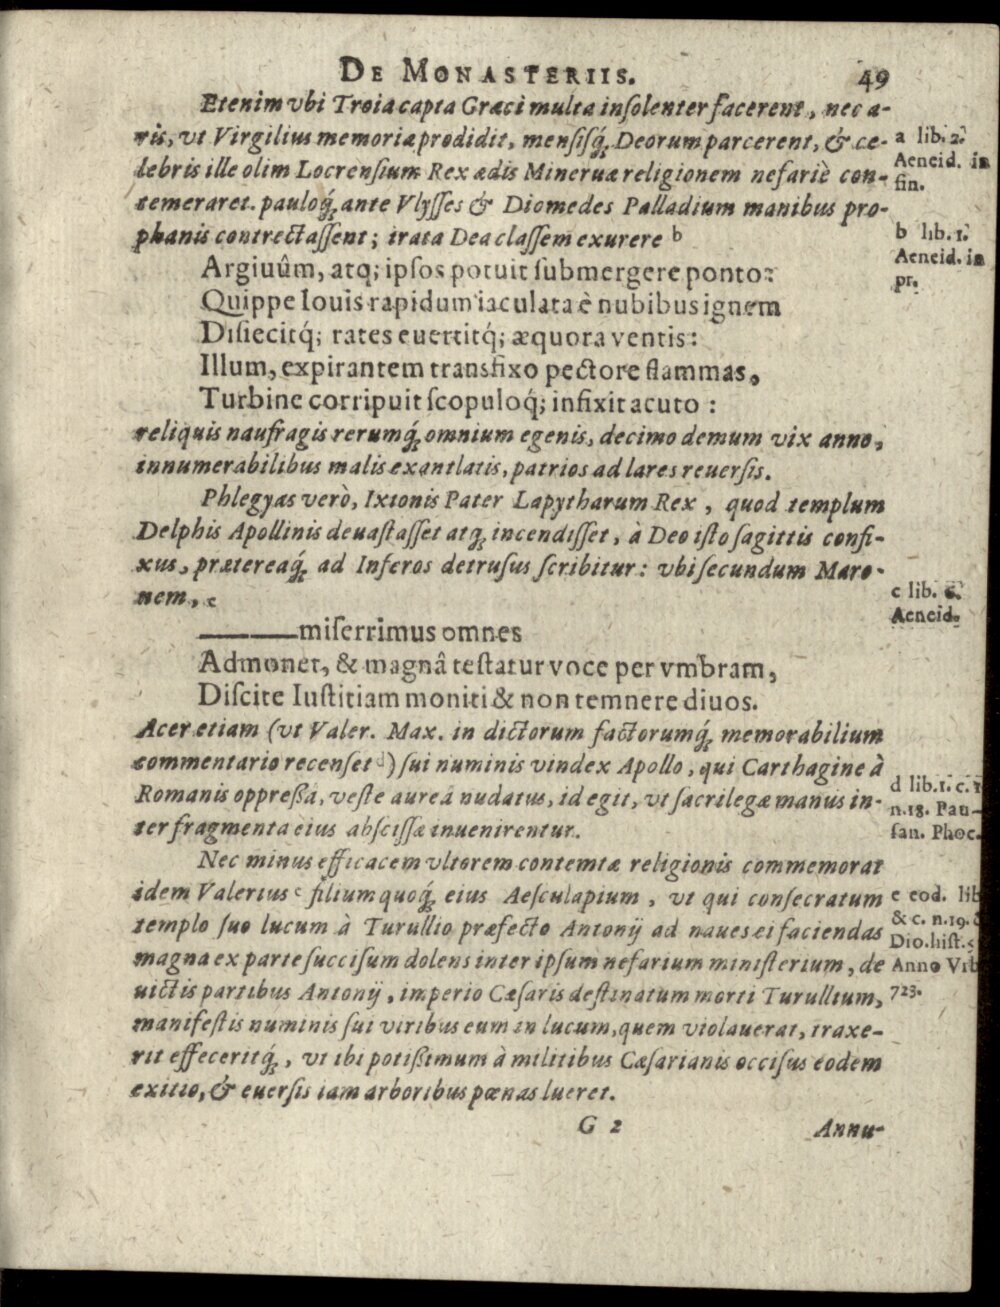 DE MONASTERIIS. 49
Etenim vbi Troia capta Græci multa insolenter facerent, nec a-
ris, vt Virgilius memoriæ prodidit, mensisq́; Deorum parcerent, & ce-
lebris ille olim Locrensium Rex ædis Mineruæ religionem nefariè con-
temeraret. pauloq́; ante Vlysses & Diomedes Palladium manibus pro-
phanis contrectassent; irata Dea classem exurere b
Argiuûm, atq; ipsos potuit submergere ponto:
Quippe Iouis rapidum iaculata è nubibus ignem
Disiecitq́; rates euertitq́; æquora ventis:
Illum, expirantem transfixo pectore flammas,
Turbine corripuit scopuloq́; infixit acuto:
reliquis naufragis rerumq́; omnium egenis, decimo demum vix anno,
innumerabilibus malis exantlatis, patrios ad lares reuersis.
Phlegyas verò, Ixionis Pater Lapytharum Rex, quod templum
Delphis Apollinis deuastasset atq́; incendisset, à Deo isto sagittis confi-
xus, prætereaq́; ad Inferos detrusus scribitur: vbi secundum Maro-
nem, c
———miserrimus omnes
Admonet, & magnâ testatur voce per vmbram,
Discite Iustitiam moniti & non temnere diuos.
Acer etiam (vt Valer. Max. in dictorum factorumq́; memorabilium
commentario recenset d) sui numinis vindex Apollo, qui Carthagine à
Romanis oppressâ, veste aureâ nudatus, id egit, vt sacrilegæ manus in-
ter fragmenta eius abscissæ inuenirentur.
Nec minus efficacem vltorem contemtæ religionis commemorat
idem Valerius e filium quoq́; eius Aesculapium, vt qui consecratum
templo suo lucum à Turullio præfecto Antonij ad naues ei faciendas
magna ex parte succisum dolens inter ipsum nefarium ministerium, de
uictis partibus Antonij, imperio Cæsaris destinatum morti Turullium,
manifestis numinis sui viribus eum in lucum, quem violauerat, traxe-
rit effeceritq́;, vt ibi potissimum à militibus Cæsarianis occisus eodem
exitio, & euersis iam arboribus pœnas lueret.
G 2 Annu-
a lib. 2.
Aeneid. in
fin.
b lib. 1.
Aeneid. in
pr.
c lib. 6.
Aeneid.
d lib. 1. c. 1
n. 18. Pau-
san. Phoc.
e eod. lib
& c. n. 19. &
Dio. hist.
Anno Vrb
723.